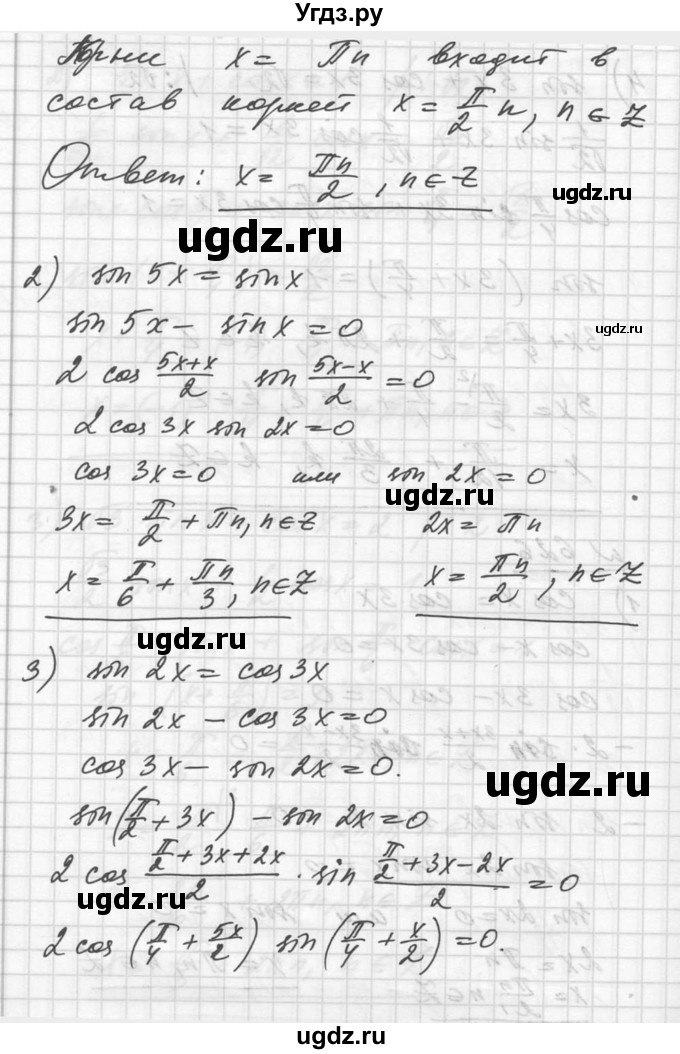 Угдз.ру
Корни x = πn входит в
состав корней x = π/2 n, n ∈ Z
Ответ: x = πn/2, n ∈ Z
ugdz.ru
ugdz.ru
2) sin 5x = sin x
sin 5x − sin x = 0
ugdz.ru
2 cos (5x+x)/2 sin (5x−x)/2 = 0
2 cos 3x sin 2x = 0
cos 3x = 0 или sin 2x = 0
ugdz.ru
3x = π/2 + πn, n ∈ Z 2x = πn
x = π/6 + πn/3, n ∈ Z x = πn/2, n ∈ Z
ugdz.ru
ugdz.ru
3) sin 2x = cos 3x
sin 2x − cos 3x = 0
cos 3x − sin 2x = 0.
ugdz.ru
sin(π/2 + 3x) − sin 2x = 0
2 cos (π/2 + 3x + 2x)/2 · sin (π/2 + 3x − 2x)/2 = 0
ugdz.ru
2 cos (π/4 + 5x/2) sin (π/4 + x/2) = 0.
ugdz.ru